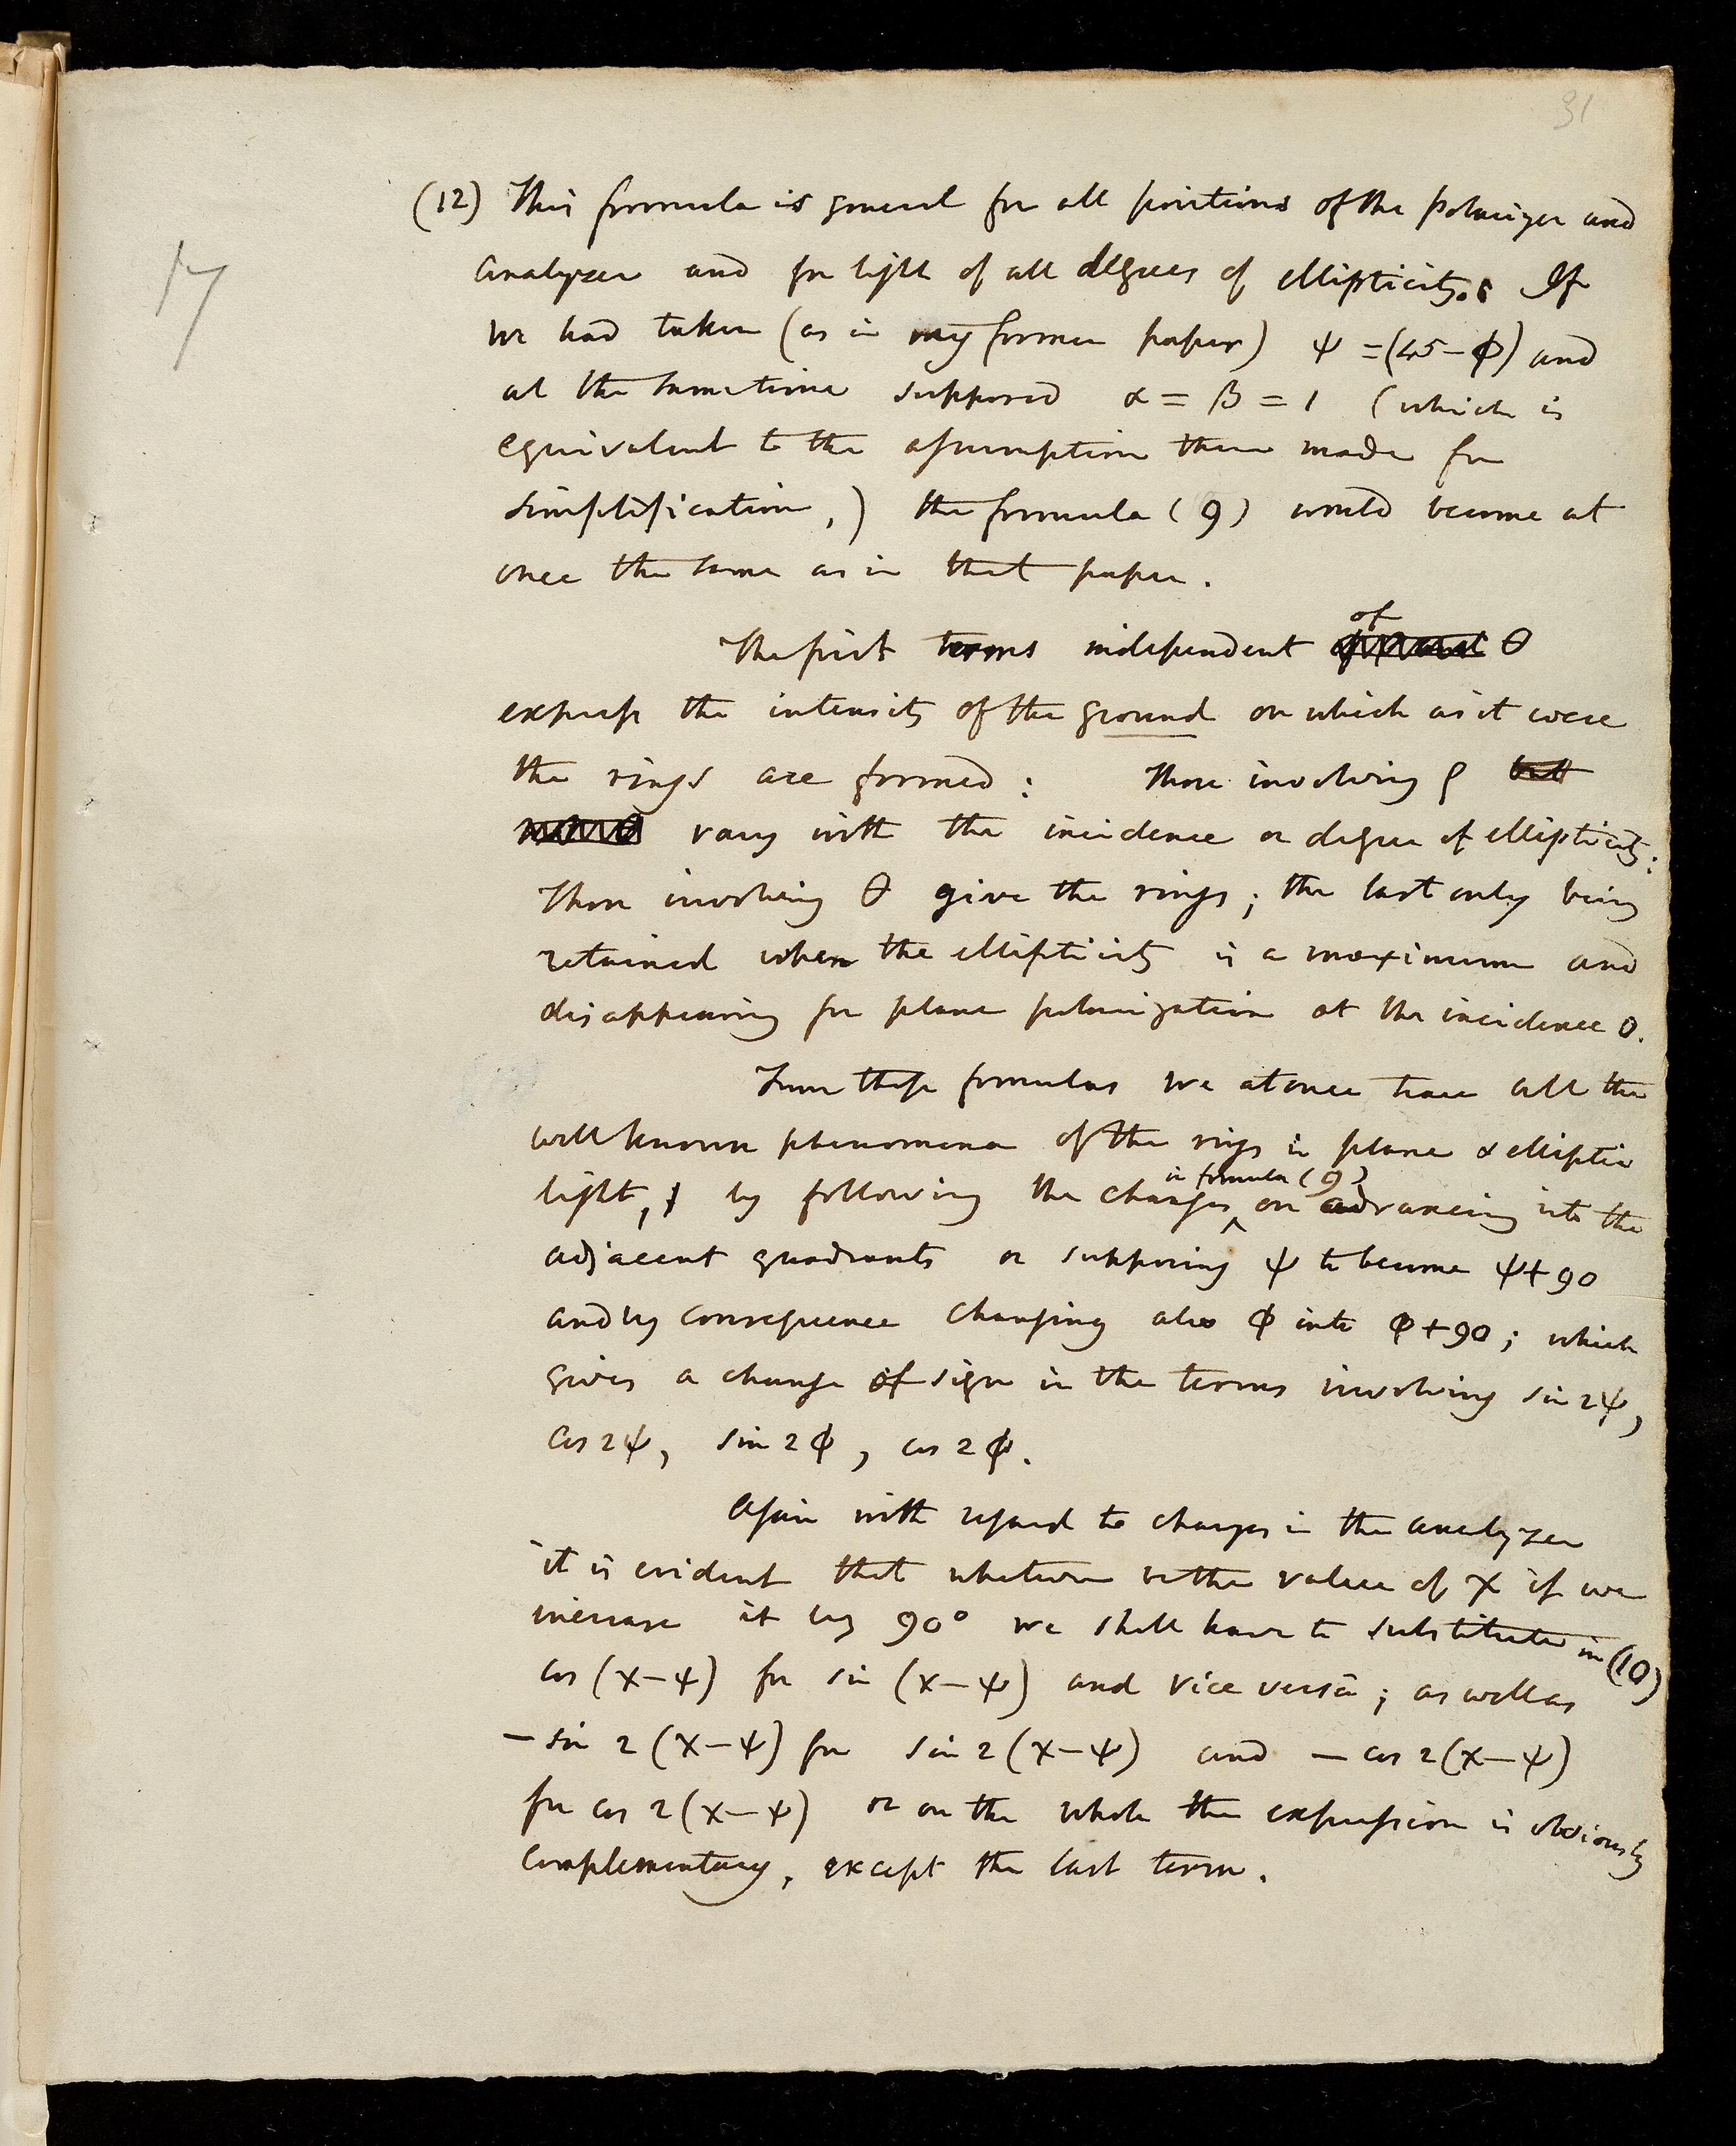 31
17
(12) This formula is general for all positions of the polarizer and
analyzer and for light of all degrees of ellipticity. If
we had taken (as in my former paper) ψ = (45 - ϕ) and
at the same time supposed α = β = 1 (which is
equivalent to the assumption there made for
simplification,) the formula (9) would become at
once the same as in that paper.
of
The first terms independent θ
express the intensity of the ground on which as it were
the rings are formed: Those involving ρ but
vary with the incidence or degree of ellipticity:
Those involving θ give the rings; the last only being
retained when the ellipticity is a maximum and
disappearing for plane polarization at the incidence 0.
From these formulas we at once trace all the
well known phenomena of the rings in plane & elliptic
in formula (9)
light, by following the changes ‸ on advancing into the
adjacent quadrants or supposing ψ to become ψ+90
and by consequence changing also ϕ into ϕ+90; which
gives a change of sign in the terms involving sin 2ψ,
cos 2ψ, sin 2ϕ, cos 2ϕ.
Again with regard to changes in the analyzer
it is evident that whatever be the value of χ if we
increase it by 90° we shall have to substitute in (10)
cos (χ-ψ) for sin (χ-ψ) and vice versâ; as well as
- sin 2 (χ-ψ) for sin 2 (χ-ψ) and - cos 2(χ-ψ)
for cos 2(χ-ψ) or on the whole the expression is obviously
complementary, except the last term.